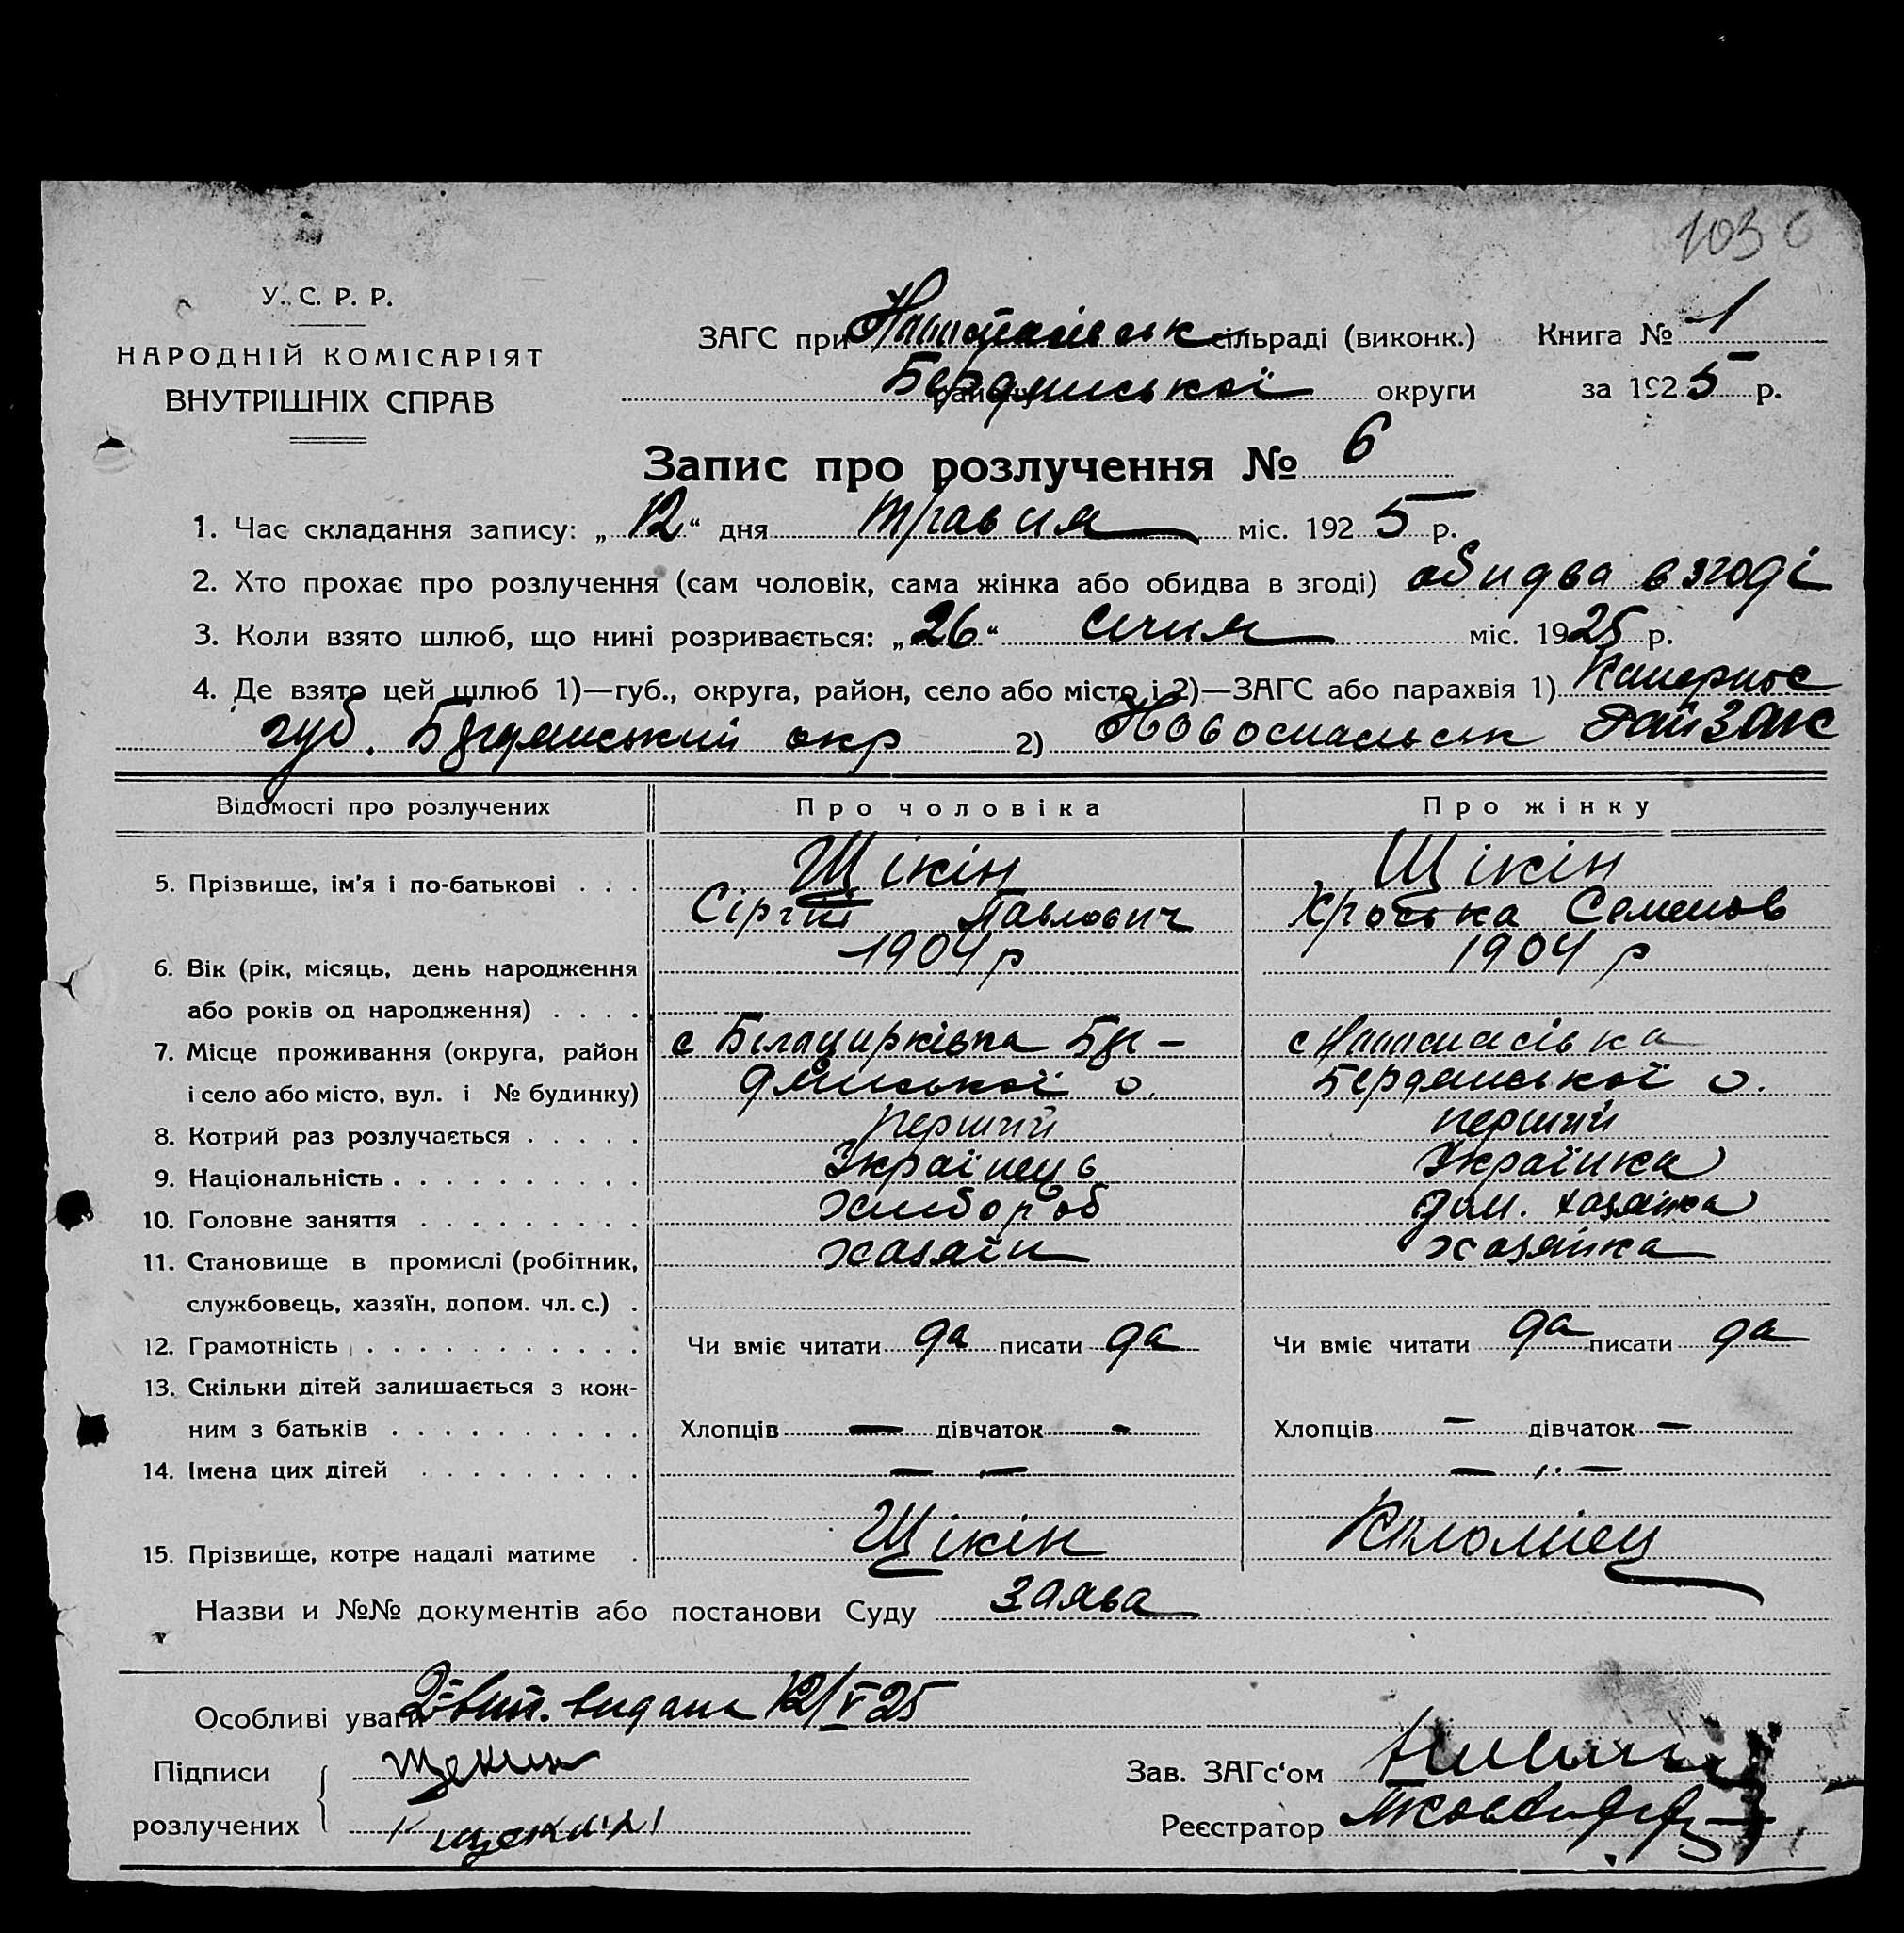 103 6
У. С. Р. Р.
НАРОДНІЙ КОМІСАРІЯТ
ВНУТРІШНІХ СПРАВ
ЗАГС при сільраді (виконк.) Книга № 1
району Бердянської округи за 1925 р.
Запис про розлучення № 6
1. Час складання запису: „12“ дня травня міс. 1925 р.
2. Хто прохає про розлучення (сам чоловік, сама жінка або обидва в згоді) обидва в згоді
3. Коли взято шлюб, що нині розривається: „26“ січня міс. 1925 р.
4. Де взято цей шлюб 1)—губ., округа, район, село або місто і 2)—ЗАГС або парахвія 1)
губ. Бердянський окр 2) Новоспаськ РайЗАГС
Відомості про розлучених Про чоловіка Про жінку
5. Прізвище, ім'я і по-батькові . . . Щікін Щікін
Сіргій Павлович Семенов
6. Вік (рік, місяць, день народження 1904 р 1904 р
або років од народження) . . . .
7. Місце проживання (округа, район с Білацирківка Бер- с
і село або місто, вул. і № будинку) дянської о. Бердянської о.
8. Котрий раз розлучається . . . . . перший перший
9. Національність . . . . . . . . . . Українець Українка
10. Головне заняття . . . . . . . . . хлибороб дом. хазяйка
11. Становище в промислі (робітник, хазяїн хазяйка
службовець, хазяїн, допом. чл. с.) .
12. Грамотність . . . . . . . . . . . Чи вміє читати да писати да Чи вміє читати да писати да
13. Скільки дітей залишається з кож-
ним з батьків . . . . . . . . . . Хлопців — дівчаток - Хлопців — дівчаток —
14. Імена цих дітей . . . . . . . . . — „ — — „ —
15. Прізвище, котре надалі матиме . Щікін Коломіец
Назви и №№ документів або постанови Суду заява
Особливі уваги видана 12/V 25
Підписи Щекин Зав. ЗАГс‘ом
розлучених Реєстратор